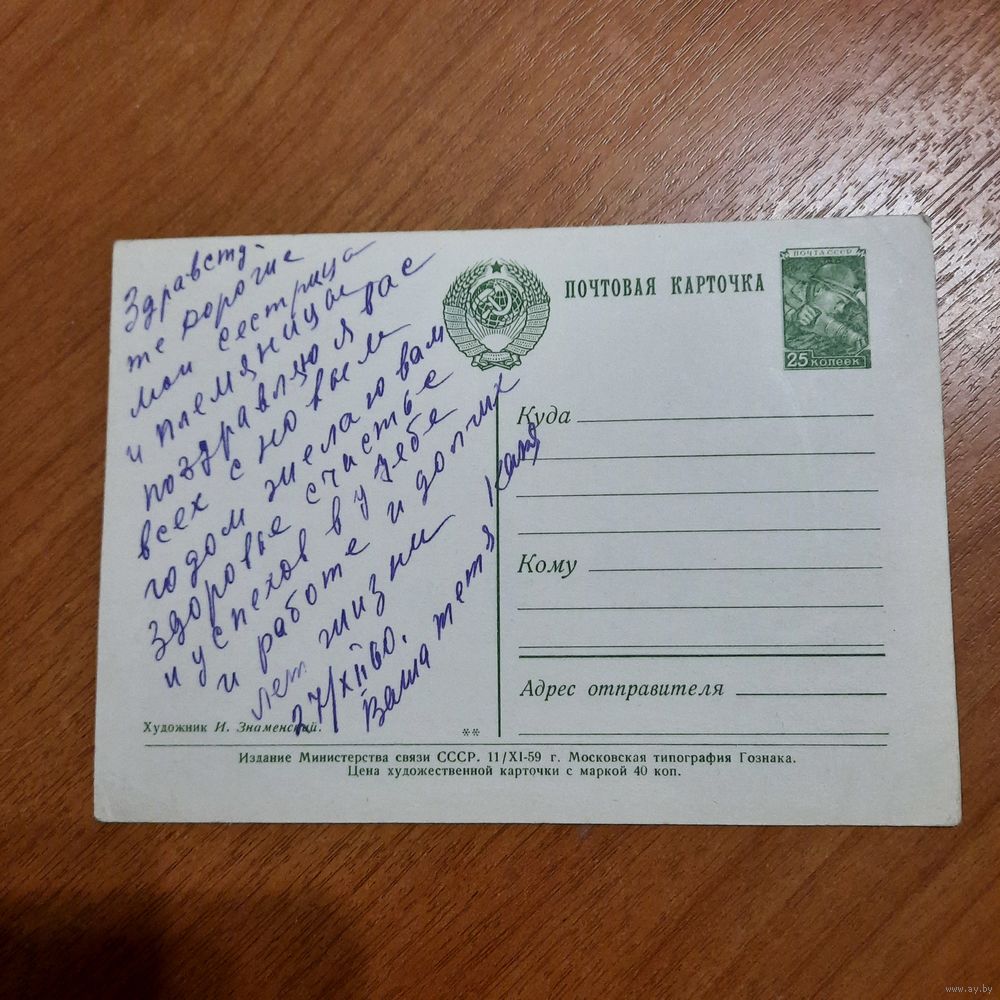 Здравству-
те дорогие
мои сестрица
и племяницы
поздравляю я вас
всех с новым
годом желаю вам
здоровье счастье
и успехов в учебе
и работе и долгих
лет жизни
27/XII 60.
Ваша тетя Катя
Художник И. Знаменский.
**
ПОЧТОВАЯ КАРТОЧКА
ПОЧТА СССР
25 КОПЕЕК
Куда
Кому
Адрес отправителя
Издание Министерства связи СССР. 11/XI-59 г. Московская типография Гознака.
Цена художественной карточки с маркой 40 коп.
www.ay.by